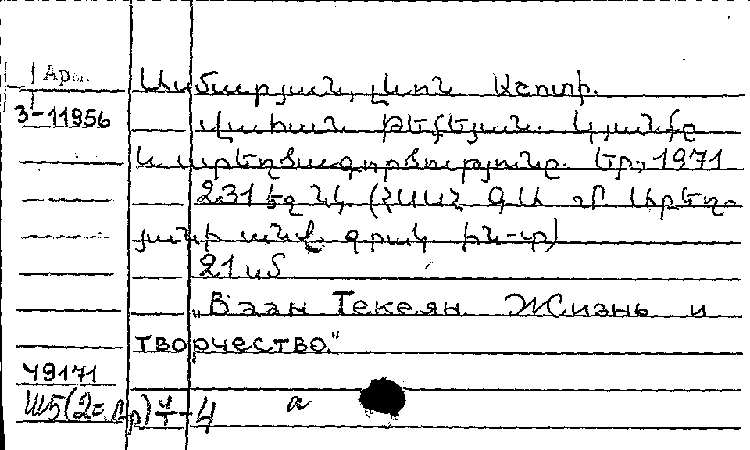 Арм.
3-11956
Համբարյան, Լևոն Աշոտի.
Վահան Թեքեյան. Կյանքը
և ստեղծագործությունը. Եր., 1971
231 եզ նկ. (ՀՍՍՀ ԳԱ
յանի անվ. գրակ. ին-տ)
21 սմ
"Ваан Текеян. Жизнь и
творчество."
49171
Ш5(2=Ар)
а